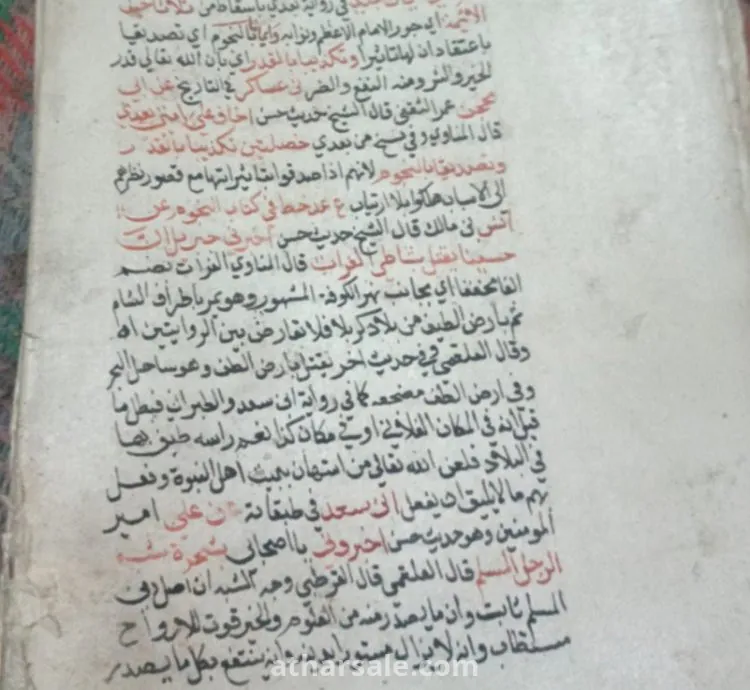 في رواية تعدي باسقاط من ثلاثا حيف
الائمة اي جور الامام الاعظم ونوابه وايمانا بالنجوم اي تصديقا
باعتقاد ان لها تاثيرا وتكذيبا بالقدر اي بان الله تعالي قدر
الخير والشر ومنه النفع والضر بن عساكر في التاريخ عن ابي
محجن عمر الثقفي قال الشيخ حديث حسن اخاف على امتي بعدي
قال المناوي وفي نسخ من بعدي خصلتين تكذيبا بالقدر
وتصديقا بالنجوم لانهم اذا صدقوا بتاثيراتها مع قصور نظرهم
الى الاسباب هلكوا بلا ارتياب ع عد خط في كتاب النجوم عن
انس بن مالك قال الشيخ حديث حسن اخبرني جبريل ان
حسينا يقتل بشاطئ الفرات قال المناوي الفرات بضم
الفا مخففا اي بجانب نهر الكوفة المشهور وهو يمر باطراف الشام
ثم بارض الطيف من بلاد كربلا فلا تعارض بين الروايتين اه
وقال العلقمي في حديث اخر يقتل بارض الطف وهو ساحل البحر
وفي ارض الطف مضجعه كما في رواية ابن سعد والطبراني فبطل ما
قيل انه في المكان الفلاني او في مكان كذا نعم راسه طيف بها
في البلاد فلعن الله تعالي من استهان ببيت اهل النبوة وفعل
بهم ما لا يليق ان يفعل ابن سعد في طبقاته عن علي امير
المومنين وهو حديث حسن اخبروني يا اصحابي بشجرة شبه
الرجل المسلم قال العلقمي قال القرطبي وجه الشبه ان اصل دين
المسلم ثابت وان ما يصدر منه من العلوم والخير قوت للارواح
مستطاب وانه لا يزال مستورا بدينه وانه ينتفع بكل ما يصدر
atharsale.com